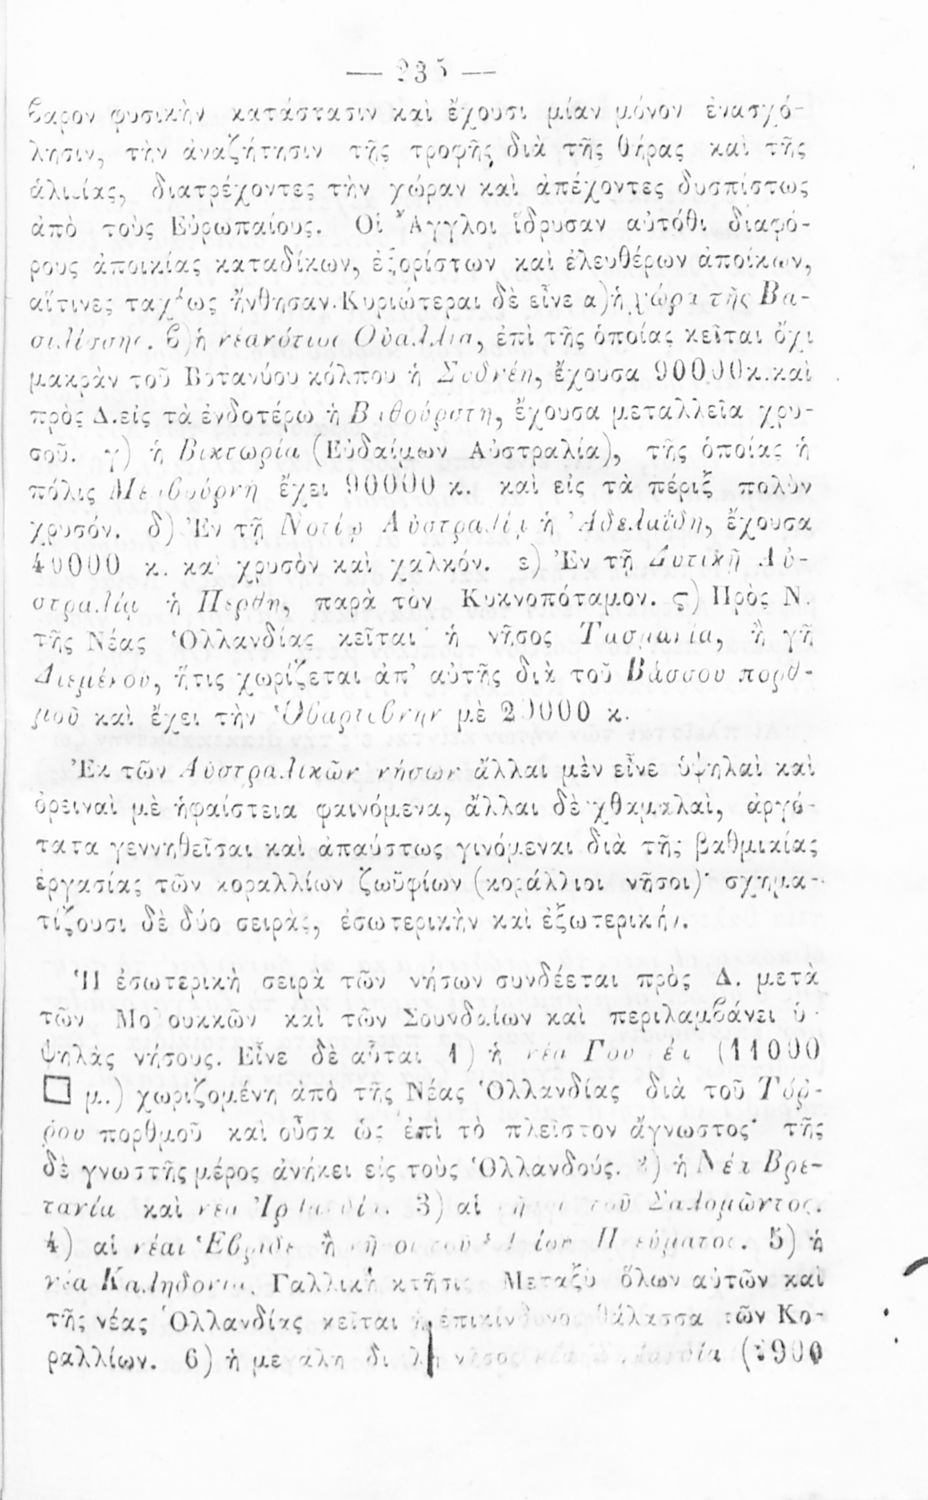 — 235 —
βαρον φυσικὴν κατάστασιν καὶ ἔχουσι μίαν μόνον ἐνασχό-
λησιν, τὴν ἀναζήτησιν τῆς τροφῆς διὰ τῆς θήρας καὶ τῆς
ἁλιείας, διατρέχοντες τὴν χώραν καὶ ἀπέχοντες δυσπίστως
ἀπὸ τοὺς Εὐρωπαίους. Οἱ Ἄγγλοι ἵδρυσαν αὐτόθι διαφό-
ρους ἀποικίας καταδίκων, ἐξορίστων καὶ ἐλευθέρων ἀποίκων,
αἵτινες ταχέως ἤνθησαν. Κυριώτεραι δὲ εἶνε α) ἡ χώρα τῆς Βα-
σιλίσσης. β) ἡ νέα νότιος Οὐαλλία, ἐπὶ τῆς ὁποίας κεῖται ὄχι
μακρὰν τοῦ Βοτανύου κόλπου ἡ Σύδνεη, ἔχουσα 90000 κ. καὶ
πρὸς Δ. εἰς τὰ ἐνδοτέρω ἡ Βαθούρστη, ἔχουσα μεταλλεῖα χρυ-
σοῦ. γ) ἡ Βικτωρία (Εὐδαίμων Αὐστραλία), τῆς ὁποίας ἡ
πόλις Μελβούρνη ἔχει 90000 κ. καὶ εἰς τὰ πέριξ πολὺν
χρυσόν. δ) Ἐν τῇ Νοτίῳ Αὐστραλίᾳ ἡ Ἀδελαΐδη, ἔχουσα
40000 κ. καὶ χρυσὸν καὶ χαλκόν. ε) Ἐν τῇ Δυτικῇ Αὐ-
στραλίᾳ ἡ Πέρθη, παρὰ τὸν Κυκνοπόταμον. ς) Πρὸς Ν.
τῆς Νέας Ὁλλανδίας κεῖται ἡ νῆσος Τασμανία, ἢ γῆ
Διεμένου, ἥτις χωρίζεται ἀπ' αὐτῆς διὰ τοῦ Βάσσου πορθ-
μοῦ καὶ ἔχει τὴν Ὁβαρτεβνην μὲ 20000 κ.
Ἐκ τῶν Αὐστραλικῶν νήσων ἄλλαι μὲν εἶνε ὑψηλαὶ καὶ
ὀρειναὶ μὲ ἡφαίστεια φαινόμενα, ἄλλαι δὲ χθαμαλαὶ, ἀργό-
τατα γεννηθεῖσαι καὶ ἀπαύστως γινόμεναι διὰ τῆς βαθμικίας
ἐργασίας τῶν κοραλλίων ζωϋφίων (κοράλλιοι νῆσοι)· σχημα-
τίζουσι δὲ δύο σειρὰς, ἐσωτερικὴν καὶ ἐξωτερικήν.
Ἡ ἐσωτερικὴ σειρὰ τῶν νήσων συνδέεται πρὸς Δ. μετὰ
τῶν Μολουκκῶν καὶ τῶν Σουνδαίων καὶ περιλαμβάνει ὑ-
ψηλὰς νήσους. Εἶνε δὲ αὗται 1) ἡ νέα Γουϊνέα (11000
□ μ.) χωριζομένη ἀπὸ τῆς Νέας Ὁλλανδίας διὰ τοῦ Τόρ-
ρου πορθμοῦ καὶ οὖσα ὡς ἐπὶ τὸ πλεῖστον ἄγνωστος· τῆς
δὲ γνωστῆς μέρος ἀνήκει εἰς τοὺς Ὁλλανδούς. 2) ἡ Νέα Βρε-
τανία καὶ νέα Ἰρλανδία. 3) αἱ νῆσοι τοῦ Σαλομῶντος.
4) αἱ νέαι Ἑβρίδες ἢ νῆσοι τοῦ Ἁγίου Πνεύματος. 5) ἡ
νέα Καληδονία, Γαλλικὴ κτῆσις. Μεταξὺ ὅλων αὐτῶν καὶ
τῆς νέας Ὁλλανδίας κεῖται ἡ ἐπικίνδυνος θάλασσα τῶν Κο-
ραλλίων. 6) ἡ μεγάλη διπλῆ νῆσος νέα Ζηλανδία